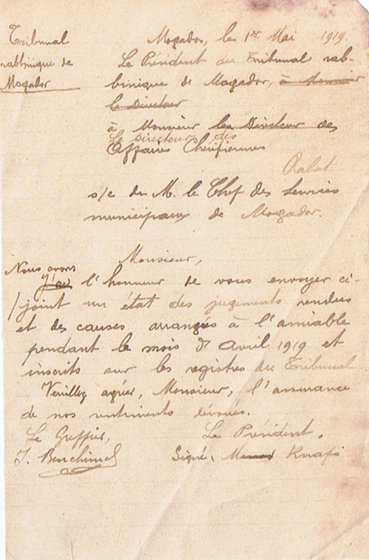 Tribunal
rabbinique de
Mogador
Mogador, le 1er Mai 1919.
Le Président du Tribunal rab-
binique de Mogador, à Monsieur
le Directeur
à Monsieur les Directeur des
le Directeur des
Affaires Chérifiennes
Rabat
s/c de M. le Chef des Services
municipaux de Mogador.
Monsieur,
Nous avons
J'ai l'honneur de vous envoyer ci-
joint un état des jugements rendus
et des causes arrangées à l'amiable
pendant le mois d'Avril 1919 et
inscrits sur les registres du Tribunal
Veuillez agréer, Monsieur, l'assurance
de nos sentiments dévoués.
Le Greffier, Le Président,
J. Benchimol Signé, Knafo